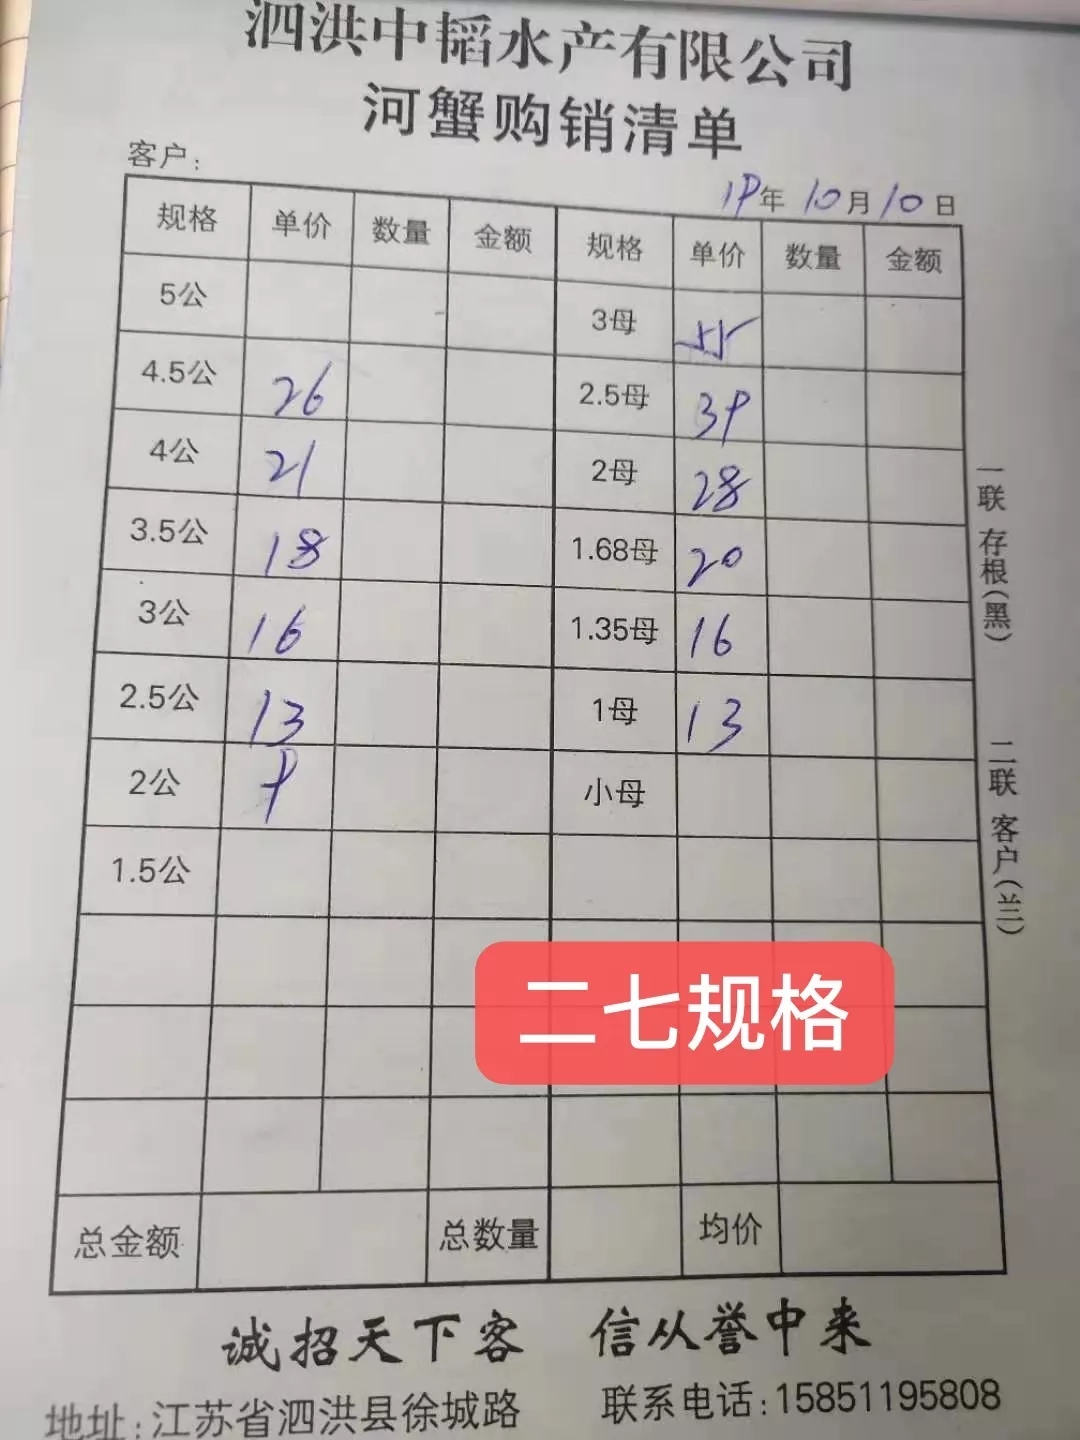 泗洪中韬水产有限公司
河蟹购销清单
客户:
19年10月10日
规格 单价 数量 金额 规格 单价 数量 金额
5公 3母 55
4.5公 26 2.5母 39
4公 21 2母 28
3.5公 18 1.68母 20
3公 16 1.35母 16
2.5公 13 1母 13
2公 9 小母
1.5公
二七规格
总金额 总数量 均价
一联 存根(黑)
二联 客户(兰)
诚招天下客 信从誉中来
地址:江苏省泗洪县徐城路 联系电话:15851195808